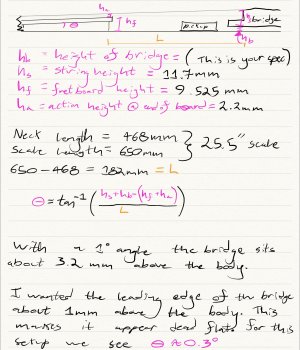 ha
θ
hf
pickup
bridge
hb
L
hb = height of bridge = (This is your spec)
hs = string height = 11.7mm
hf = fretboard height = 9.525mm
ha = action height @ end of board = 2.2mm
Neck length = 468mm
Scale length = 650mm } 25.5" scale
650-468 = 182mm = L
θ = tan⁻¹ ( hs+hb-(hf+ha) / L )
With ~ 1° angle the bridge sits
about 3.2 mm above the body.
I wanted the leading edge of the bridge
about 1mm above the body. This
makes it appear dead flat. for this
setup we see θ ≈ 0.3°